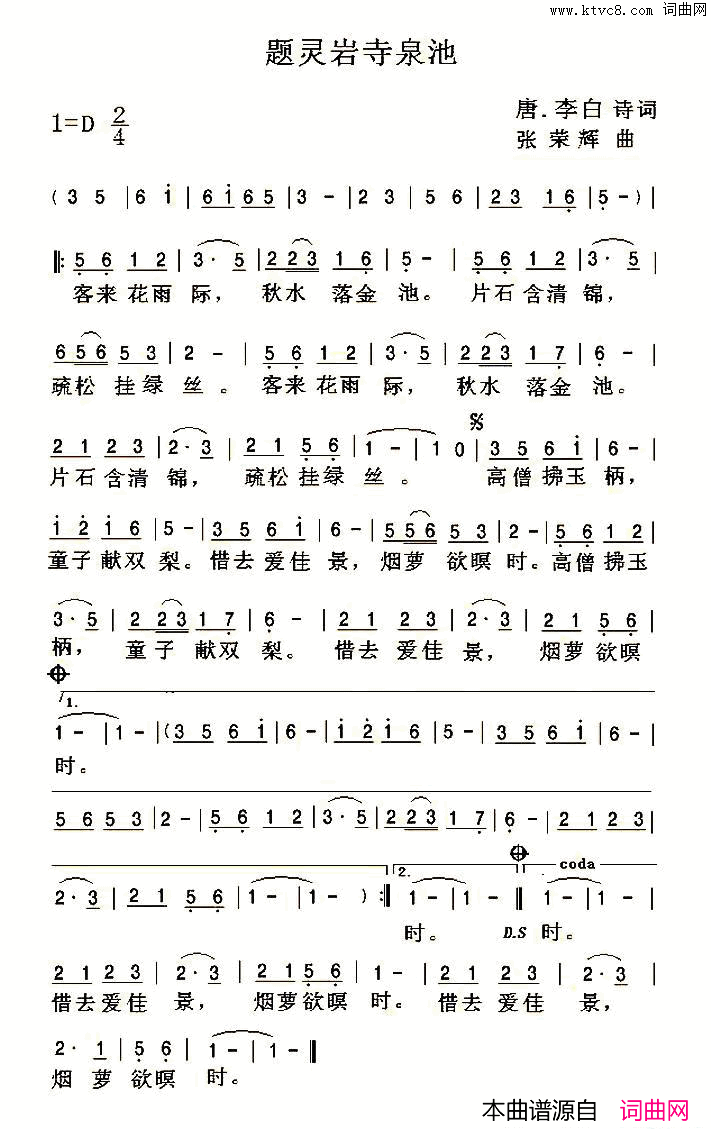 www.ktvc8.com 词曲网
题灵岩寺泉池
1=D 2/4
唐.李白 诗词
张荣辉 曲
(3 5 | 6 i | 6 i 6 5 | 3 - | 2 3 | 5 6 | 2 3 1 6 | 5 - ) |
‖: 5 6 1 2 | 3 · 5 | 2 2 3 1 6 | 5 - | 5 6 1 2 | 3 · 5 |
客来花雨 际， 秋水 落金 池。 片石含清 锦，
6 5 6 5 3 | 2 - | 5 6 1 2 | 3 · 5 | 2 2 3 1 7 | 6 - |
疏松 挂绿 丝。 客来花雨 际， 秋水 落金 池。
𝄋
2 1 2 3 | 2 · 3 | 2 1 5 6 | 1 - | 1 0 | 3 5 6 i | 6 - |
片石含清 锦， 疏松挂绿 丝。 高僧拂玉 柄，
i 2 i 6 | 5 - | 3 5 6 i | 6 - | 5 5 6 5 3 | 2 - | 5 6 1 2 |
童子献双 梨。惜去爱佳 景，烟萝 欲暝 时。高僧拂玉
3 · 5 | 2 2 3 1 7 | 6 - | 2 1 2 3 | 2 · 3 | 2 1 5 6 |
柄， 童子 献双 梨。 惜去 爱佳 景， 烟萝欲暝
1.
1 - | 1 - | (3 5 6 i | 6 - | i 2 i 6 | 5 - | 3 5 6 i | 6 - |
时。
5 6 5 3 | 2 - | 5 6 1 2 | 3 · 5 | 2 2 3 1 7 | 6 - | 2 1 2 3 |
coda
2.
2 · 3 | 2 1 5 6 | 1 - | 1 - ) :‖ 1 - | 1 - ‖ 1 - | 1 - |
时。 D.S 时。
2 1 2 3 | 2 · 3 | 2 1 5 6 | 1 - | 2 1 2 3 | 2 · 3 |
惜去爱佳 景， 烟萝欲暝 时。 惜去爱佳 景，
2 · 1 | 5 6 | 1 - | 1 - ‖
烟 萝 欲暝 时。
本曲谱源自 词曲网